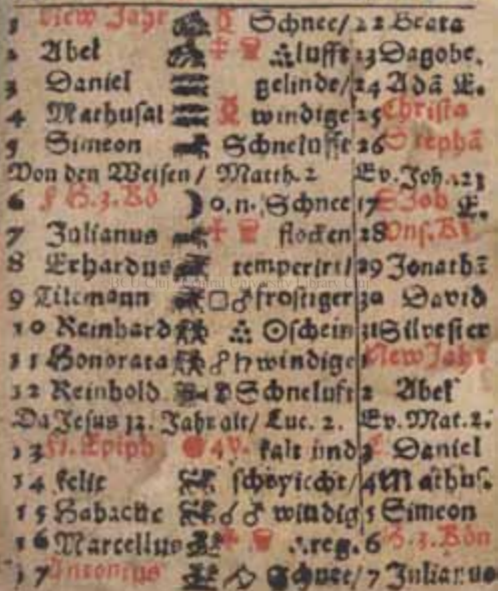 1 New Jahr Schnee/ 22 Beata
2 Abel lufft 23 Dagobe.
3 Daniel gelinde/ 24 Adã E.
4 Mathusal windige 25 Christa
5 Simeon Schnelufft 26 Stephã
Von den Weisen / Matth. 2 Ev. Joh. 123
6 H. 3. Kö o.n. Schnee 27 S Joh E.
7 Julianus flocken 28 Uns. Ki
8 Erhardus temperirt/ 29 Jonathã
9 Tilemann frostiger 30 David
10 Reinhard schein 31 Silvester
11 Honorata windige New Jahr
12 Reinhold Schneluft 2 Abel
Da Jesus 12. Jahr alt/ Luc. 2. Ev. Mat. 2.
13 Epiph kalt und 3 Daniel
14 Felix 4 Mathus.
15 Habacuc windig 5 Simeon
16 Marcellus reg. 6 H. 3. Kön
17 Antonius Schnee/ 7 Julianus